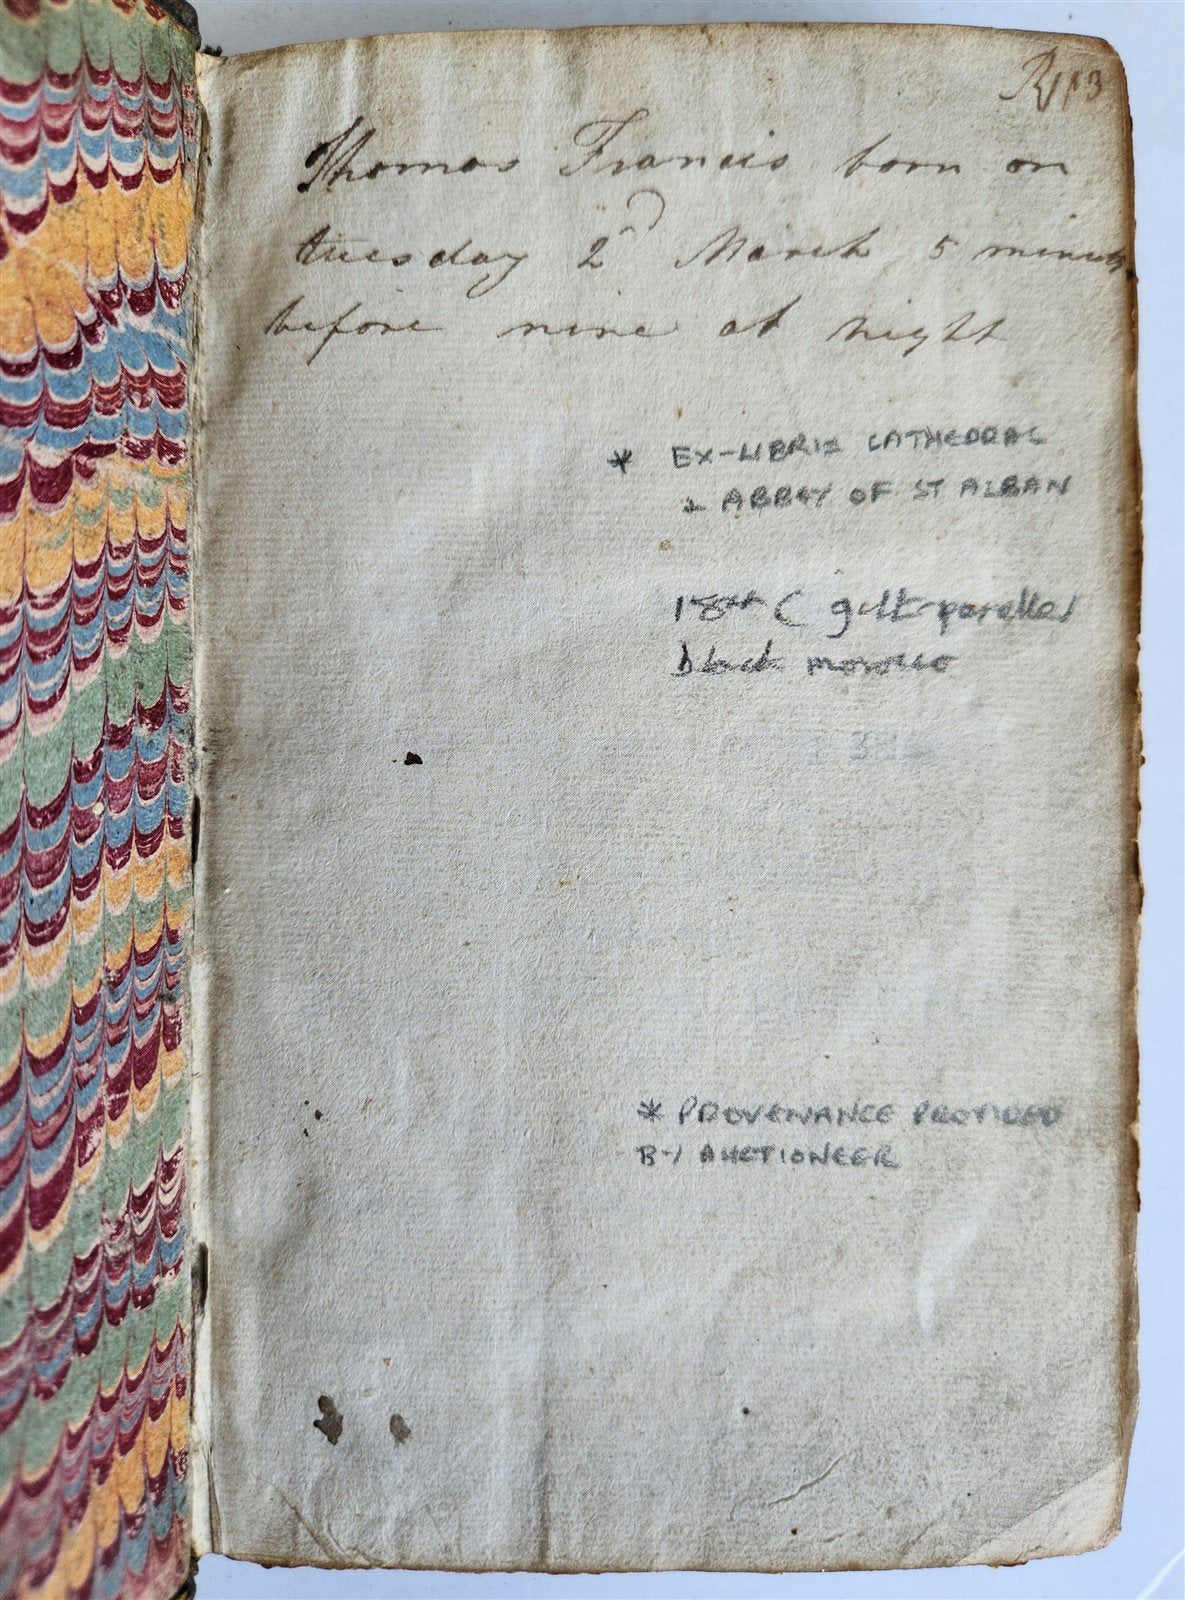 Thomas Francis born on
tuesday 2d March 5 minuts
before nine at night
* EX-LIBRIS CATHEDRAL
& ABBEY OF ST ALBAN
18th C gilt-panelled
black morocco
* PROVENANCE PROVIDED
BY AUCTIONEER